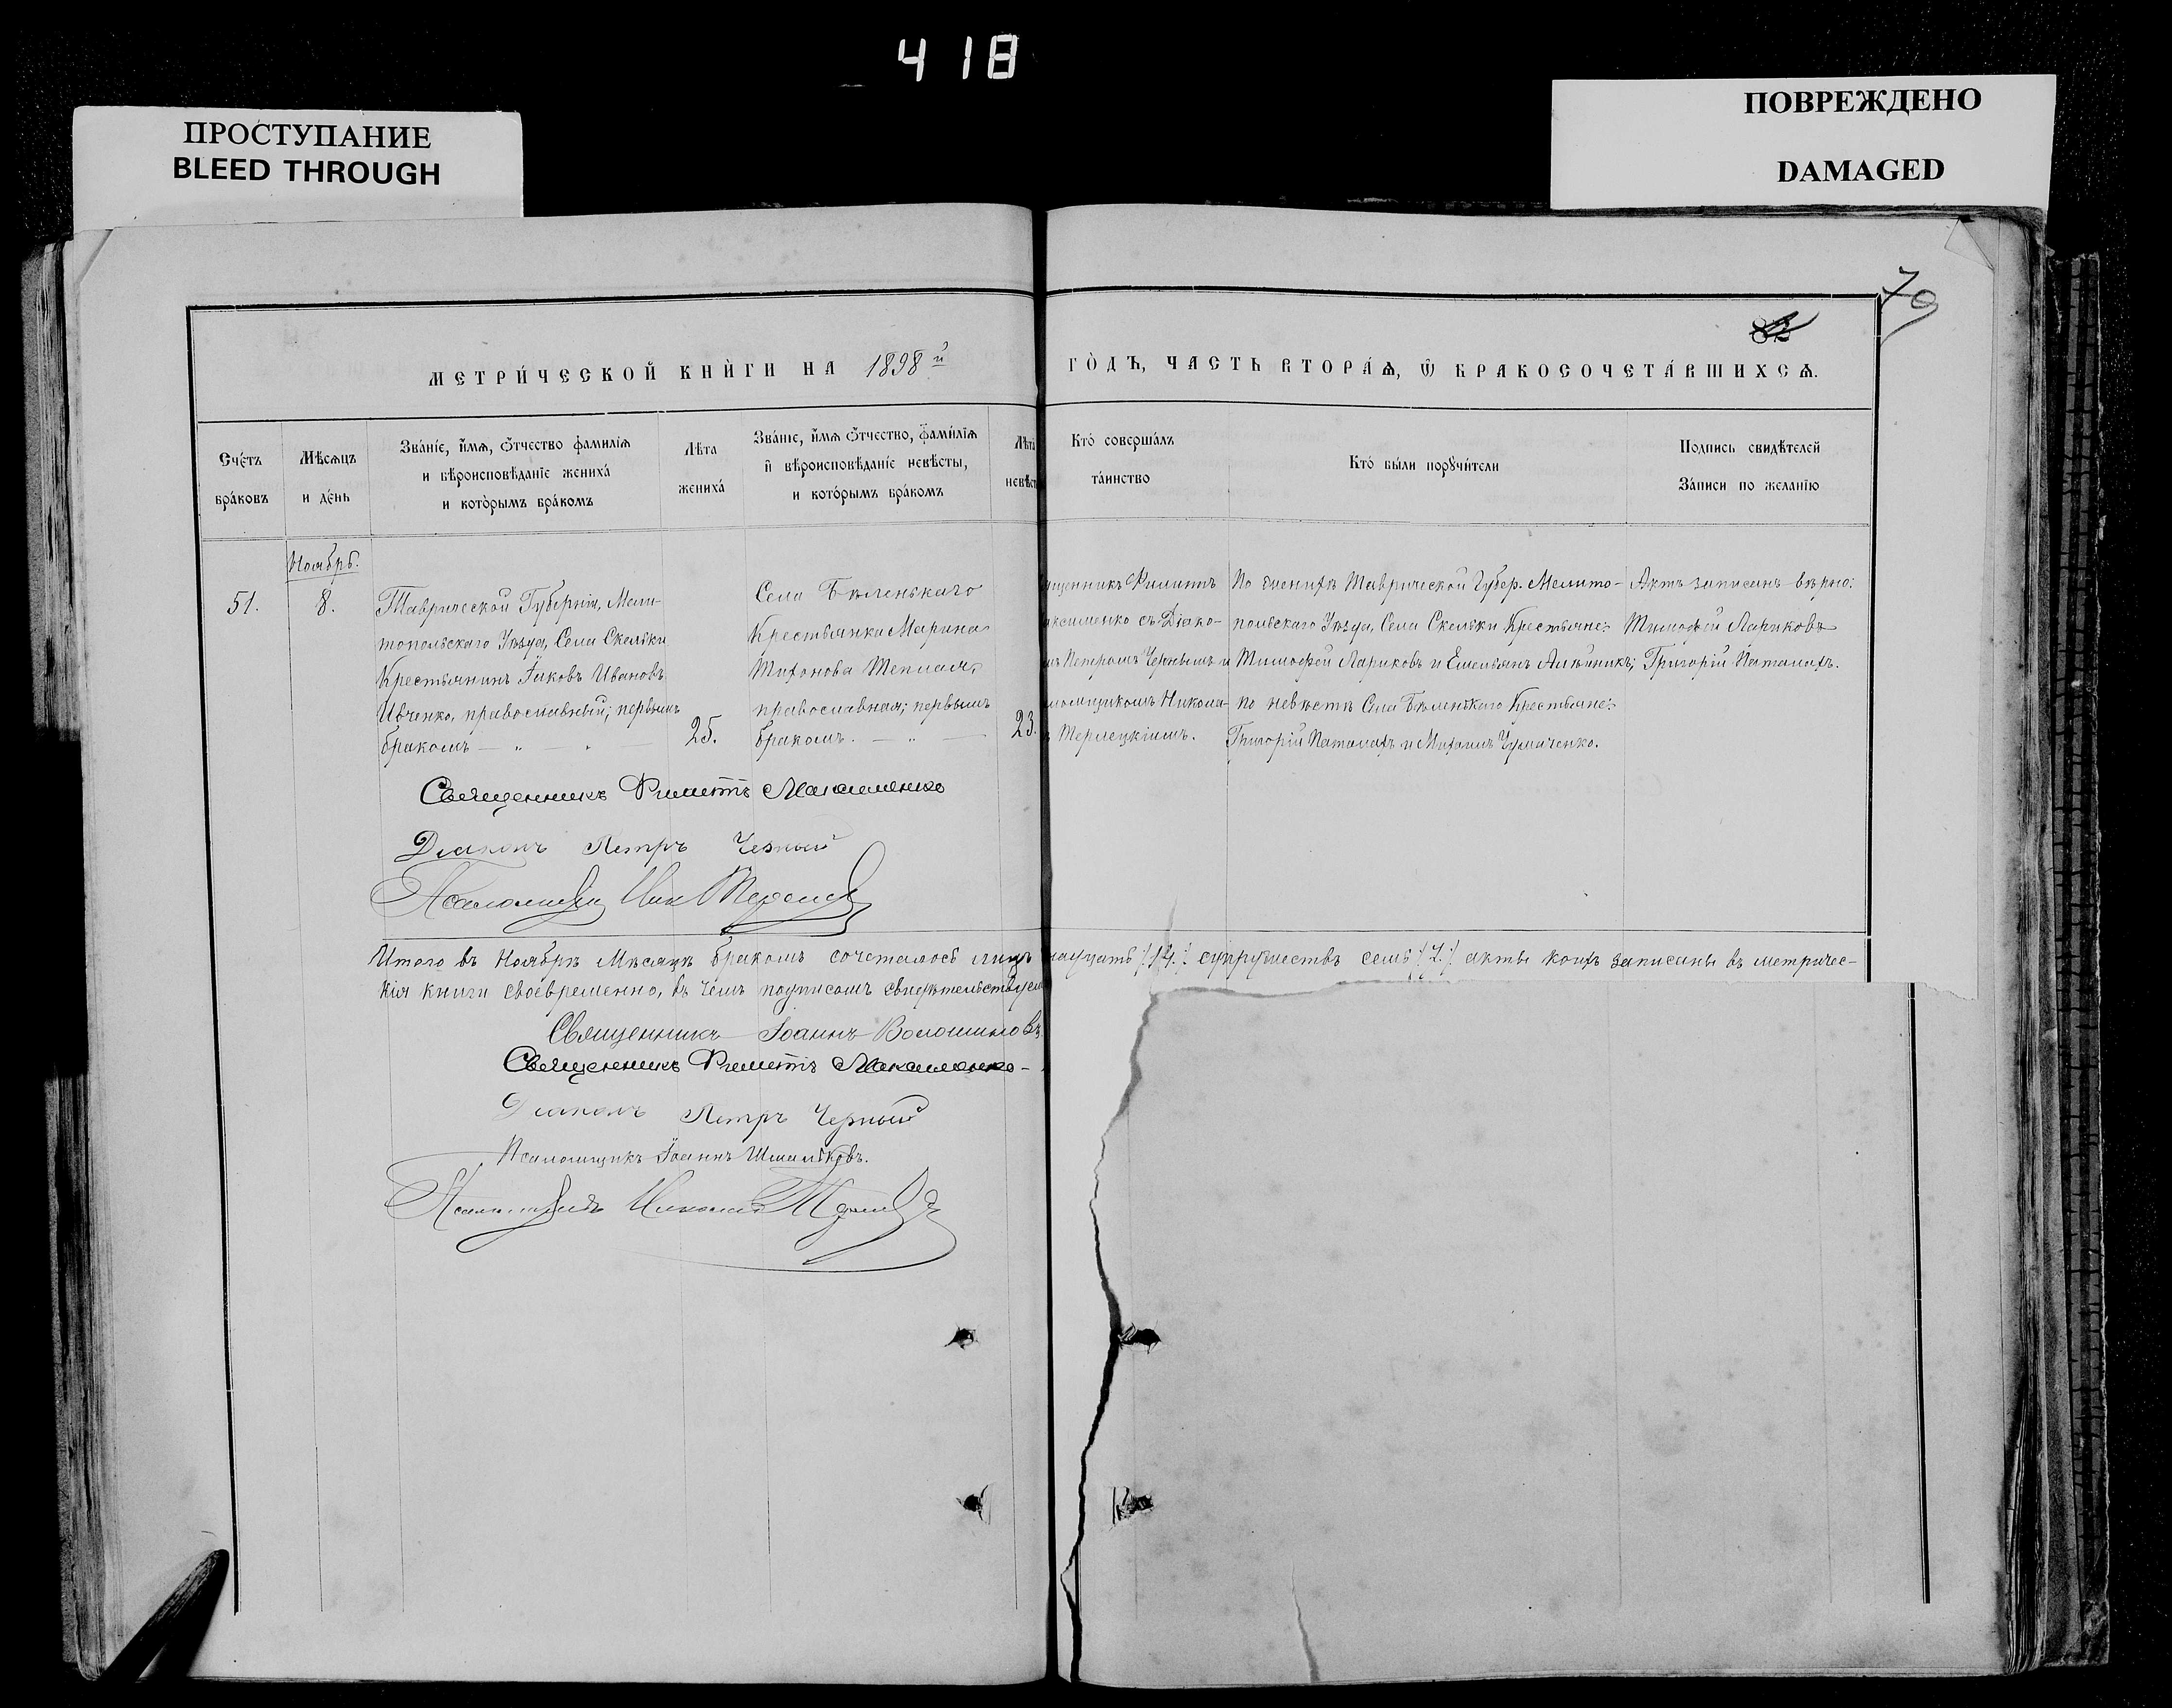 418
ПРОСТУПАНИЕ
BLEED THROUGH
ПОВРЕЖДЕНО
DAMAGED
79
82
МЕТРИ́ЧЕСКОЙ КНИ́ГИ НА 1898й ГО́ДЪ, ЧАСТЬ ВТОРА́Ѧ, Ѿ БРАКОСОЧЕТА́ВШИХСѦ.
Сче́тъ
бра́ковъ
Мѣсяцъ
и де́нь
Зва́нїе, и́мѧ, ѻ́тчество фамилїѧ
и вѣроисповѣданїе жениха́
и кото́рымъ бра́комъ
Лѣта
жениха́
Зва́нїе, и́мѧ ѻ́тчество, фами́лїѧ
и вѣроисповѣданїе невѣсты,
и кото́рымъ бра́комъ
Лѣта
невѣст
Кто́ соверша́лъ
та́инство
Кто́ бы́ли порꙋчи́тели
Подпись свидѣтелей
За́писи по желанїю
Ноябрь.
51.
8.
Таврической Губерніи, Мели-
топольскаго Уѣзда, Села Скельки
Крестьянинъ Іаковъ Ивановъ
Ивченко, православный; первымъ
бракомъ — „ — „ —
25.
Села Бѣленькаго
Крестьянка Марина
Тихонова Теплая,
православная; первымъ
бракомъ. — „ —
23.
щенникъ Филиппъ
аксименко съ Діако-
мъ Петромъ Чернымъ и
ломщикомъ Никола-
Терлецкимъ.
По женихѣ Таврической Губер. Мелито-
польскаго Уѣзда, Села Скельки Крестьяне:
Тимофей Лариковъ и Емельянъ Алейникъ;
по невѣстѣ Села Бѣленькаго Крестьяне:
Григорій Паталахъ и Михаилъ Чумаченко.
Актъ записанъ вѣрно:
Тимофей Лариковъ
Григорій Паталахъ.
Священникъ Филиппъ Максименко
Діаконъ Петръ Черный
Псаломщикъ Ник Терлец
Итого въ Ноябрѣ Мѣсяцѣ бракомъ сочеталось лицъ надцать /:14.:/ супружествъ семь /:7.:/ акты коихъ записаны въ метричес-
кія книги своевременно, въ чемъ подписомъ свидѣтельствуем
Священникъ Іоаннъ Волошиновъ
Священникъ Филиппъ Максименко -
Діаконъ Петръ Черный
Псаломщикъ Іоаннъ Шпильковъ.
Псаломщикъ Николай